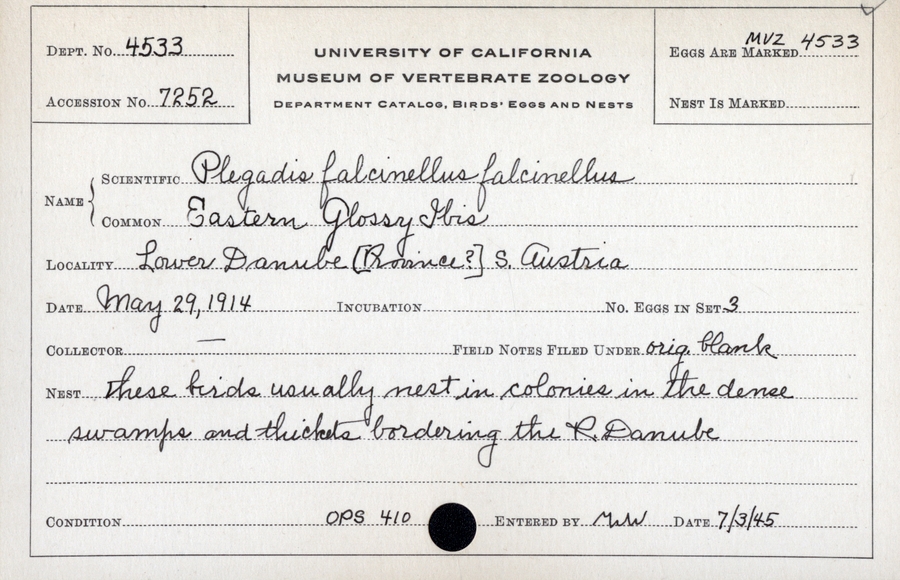 Dept. No. 4533
Accession No. 7252
UNIVERSITY OF CALIFORNIA
MUSEUM OF VERTEBRATE ZOOLOGY
Department Catalog, Birds' Eggs and Nests
Eggs Are Marked MVZ 4533
Nest Is Marked
Name { Scientific Plegadis falcinellus falcinellus
Common Eastern Glossy Ibis
Locality Lower Danube [Province?] S. Austria
Date May 29, 1914 Incubation No. Eggs in Set 3
Collector — Field Notes Filed Under orig. blank
Nest These birds usually nest in colonies in the dense
swamps and thickets bordering the R. Danube
Condition OPS 410 Entered by Date 7/3/45